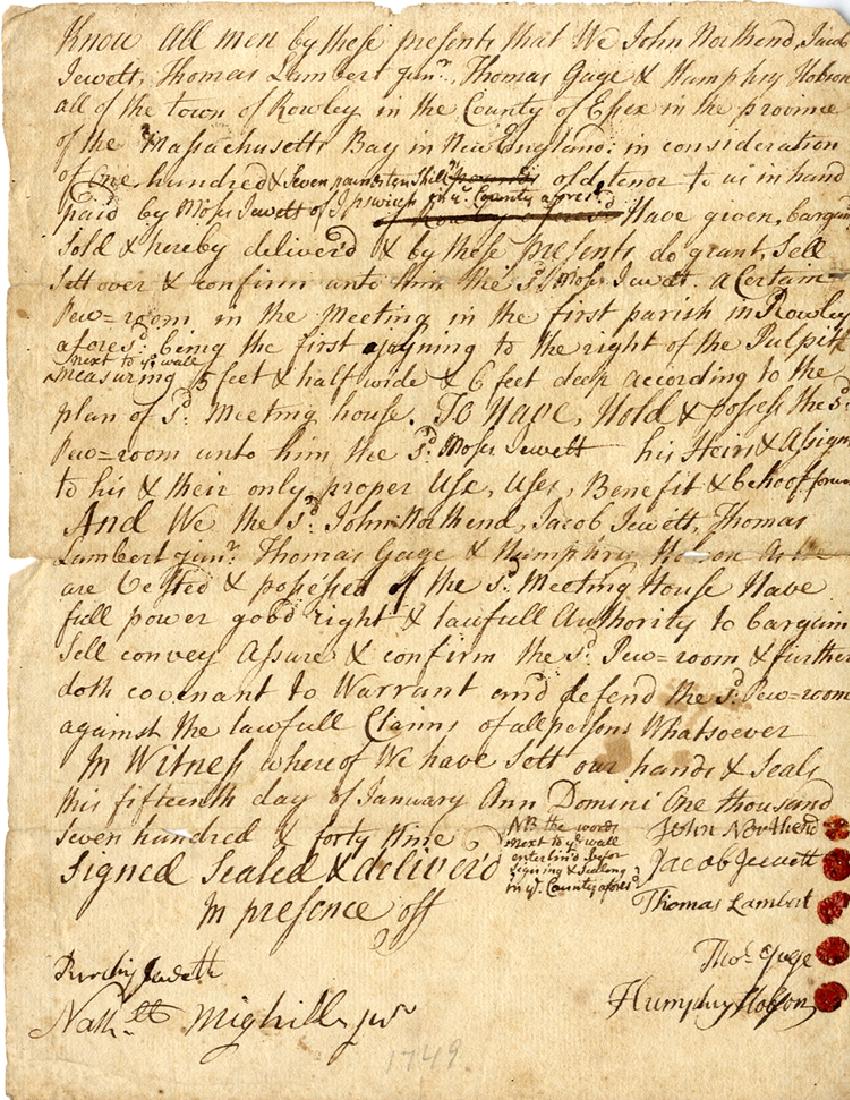 Know all men by these presents that We John Northend, Jacob
Jewett, Thomas Lambert junr., Thomas Gage & Humphry Hobson
all of the town of Rowley in the County of Essex in the province
of the Massachusetts Bay in New England: in consideration
of One hundred & Seven pounds ten Shillgs pounds old tenor to us in hand
paid by Moses Jewett of Ipswich in ye. County aforesd. of Rowley aforesd Have given, bargain
Sold & hereby deliver'd & by these presents do grant, Sell
Sett over & confirm unto him the sd. Moses Jewett. a Certain
Pew=room in the Meeting in the first parish in Rowley
aforesd. being the first ajoyning to the right of the Pulpitt
next to ye wall
measuring 5 feet & half wide & 6 feet deep according to the
plan of sd. Meeting house. To Have, Hold & possess the sd.
Pew=room unto him the sd. Moses Jewett his Heirs & Assigns
to his & their only proper Use, Uses, Benefit & behoof forever
And We the sd. John Northend, Jacob Jewett, Thomas
Lambert junr. Thomas Gage & Humphry Hobson As we
are Vested & possessed of the sd. Meeting House Have
full power good right & lawfull Authority to bargain
Sell convey Assure & confirm the sd. Pew=room & further
doth covenant to Warrant and defend the sd. Pew=room
against the lawfull Claims of all persons Whatsoever
In Witness whereof We have Sett our hands & Seals
this fifteenth day of January Ann Domini One thousand
Seven hundred & forty nine
Signed Sealed & deliver'd
In presence off
NB the words
next to ye wall
enterlin'd befor
Signing & Sealing
in ye. County aforesd
John Northend
Jacob Jewett
Thomas Lambert
Thos. Gage
Humphry Hobson
Jewett
Nathll Mighill jur
1749